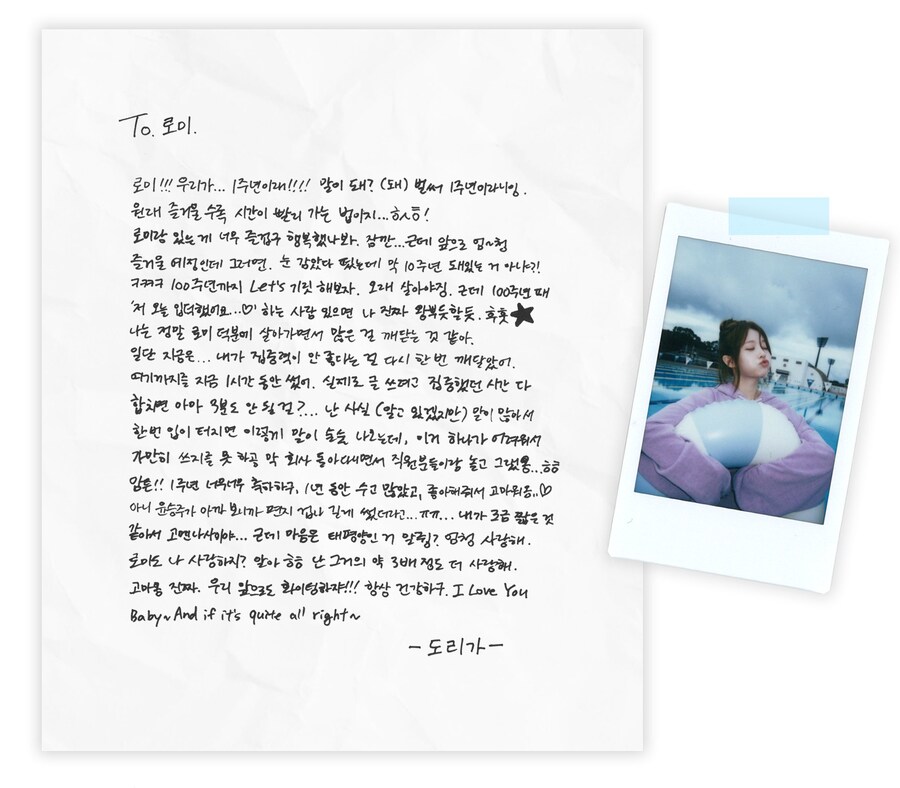 To. 로미.
로미!!! 우리가... 1주년이래!!!! 말이 돼? (돼) 벌써 1주년이라니잉.
원래 즐거울 수록 시간이 빨리 가는 법이지...ㅎㅅㅎ!
로미랑 있는게 너무 즐겁구 행복했나봐. 잠깐...근데 앞으로 엄~청
즐거울 예정인데 그러면. 눈 감았다 떴는데 막 10주년 돼있는 거 아냐?!
ㅋㅋㅋㅋ 100주년까지 Let's 기릿 해보자. 오래 살아야징. 근데 100주년 때
'저 오늘 입덕했어요...♡' 하는 사람 있으면 나 진짜 왕뿌듯할듯. 훗훗★
나는 정말 로미 덕분에 살아가면서 많은 걸 깨닫는 것 같아.
일단 지금은... 내가 집중력이 안 좋다는 걸 다시 한 번 깨달았어.
여기까지를 지금 1시간 동안 썼어. 실제로 글 쓰려고 집중했던 시간 다
합치면 아마 3분도 안 될 걸?... 난 사실 (알고 있겠지만) 말이 많아서
한번 입이 터지면 이렇게 말이 술술 나오는데, 이거 하나가 어려워서
가만히 쓰지를 못 하공 막 회사 돌아다니면서 직원분들이랑 놀고 그랬옹..ㅎㅎ
암튼!! 1주년 너무너무 축하하구, 1년 동안 수고 많았고, 좋아해줘서 고마워용..♡
아니 윤승주가 아까 보니까 편지 겁나 길게 썼더라고...ㅠㅠ... 내가 조금 짧은 것
같아서 고멘나사이야... 근데 마음은 태평양인 거 알쥥? 엄청 사랑해.
로미도 나 사랑하지? 알아 ㅎㅎ 난 그거의 약 3배 정도 더 사랑해.
고마옹 진짜. 우리 앞으로도 화이팅하쟈!!! 항상 건강하구. I Love You
Baby~And if it's quite all right~
- 도리가 -